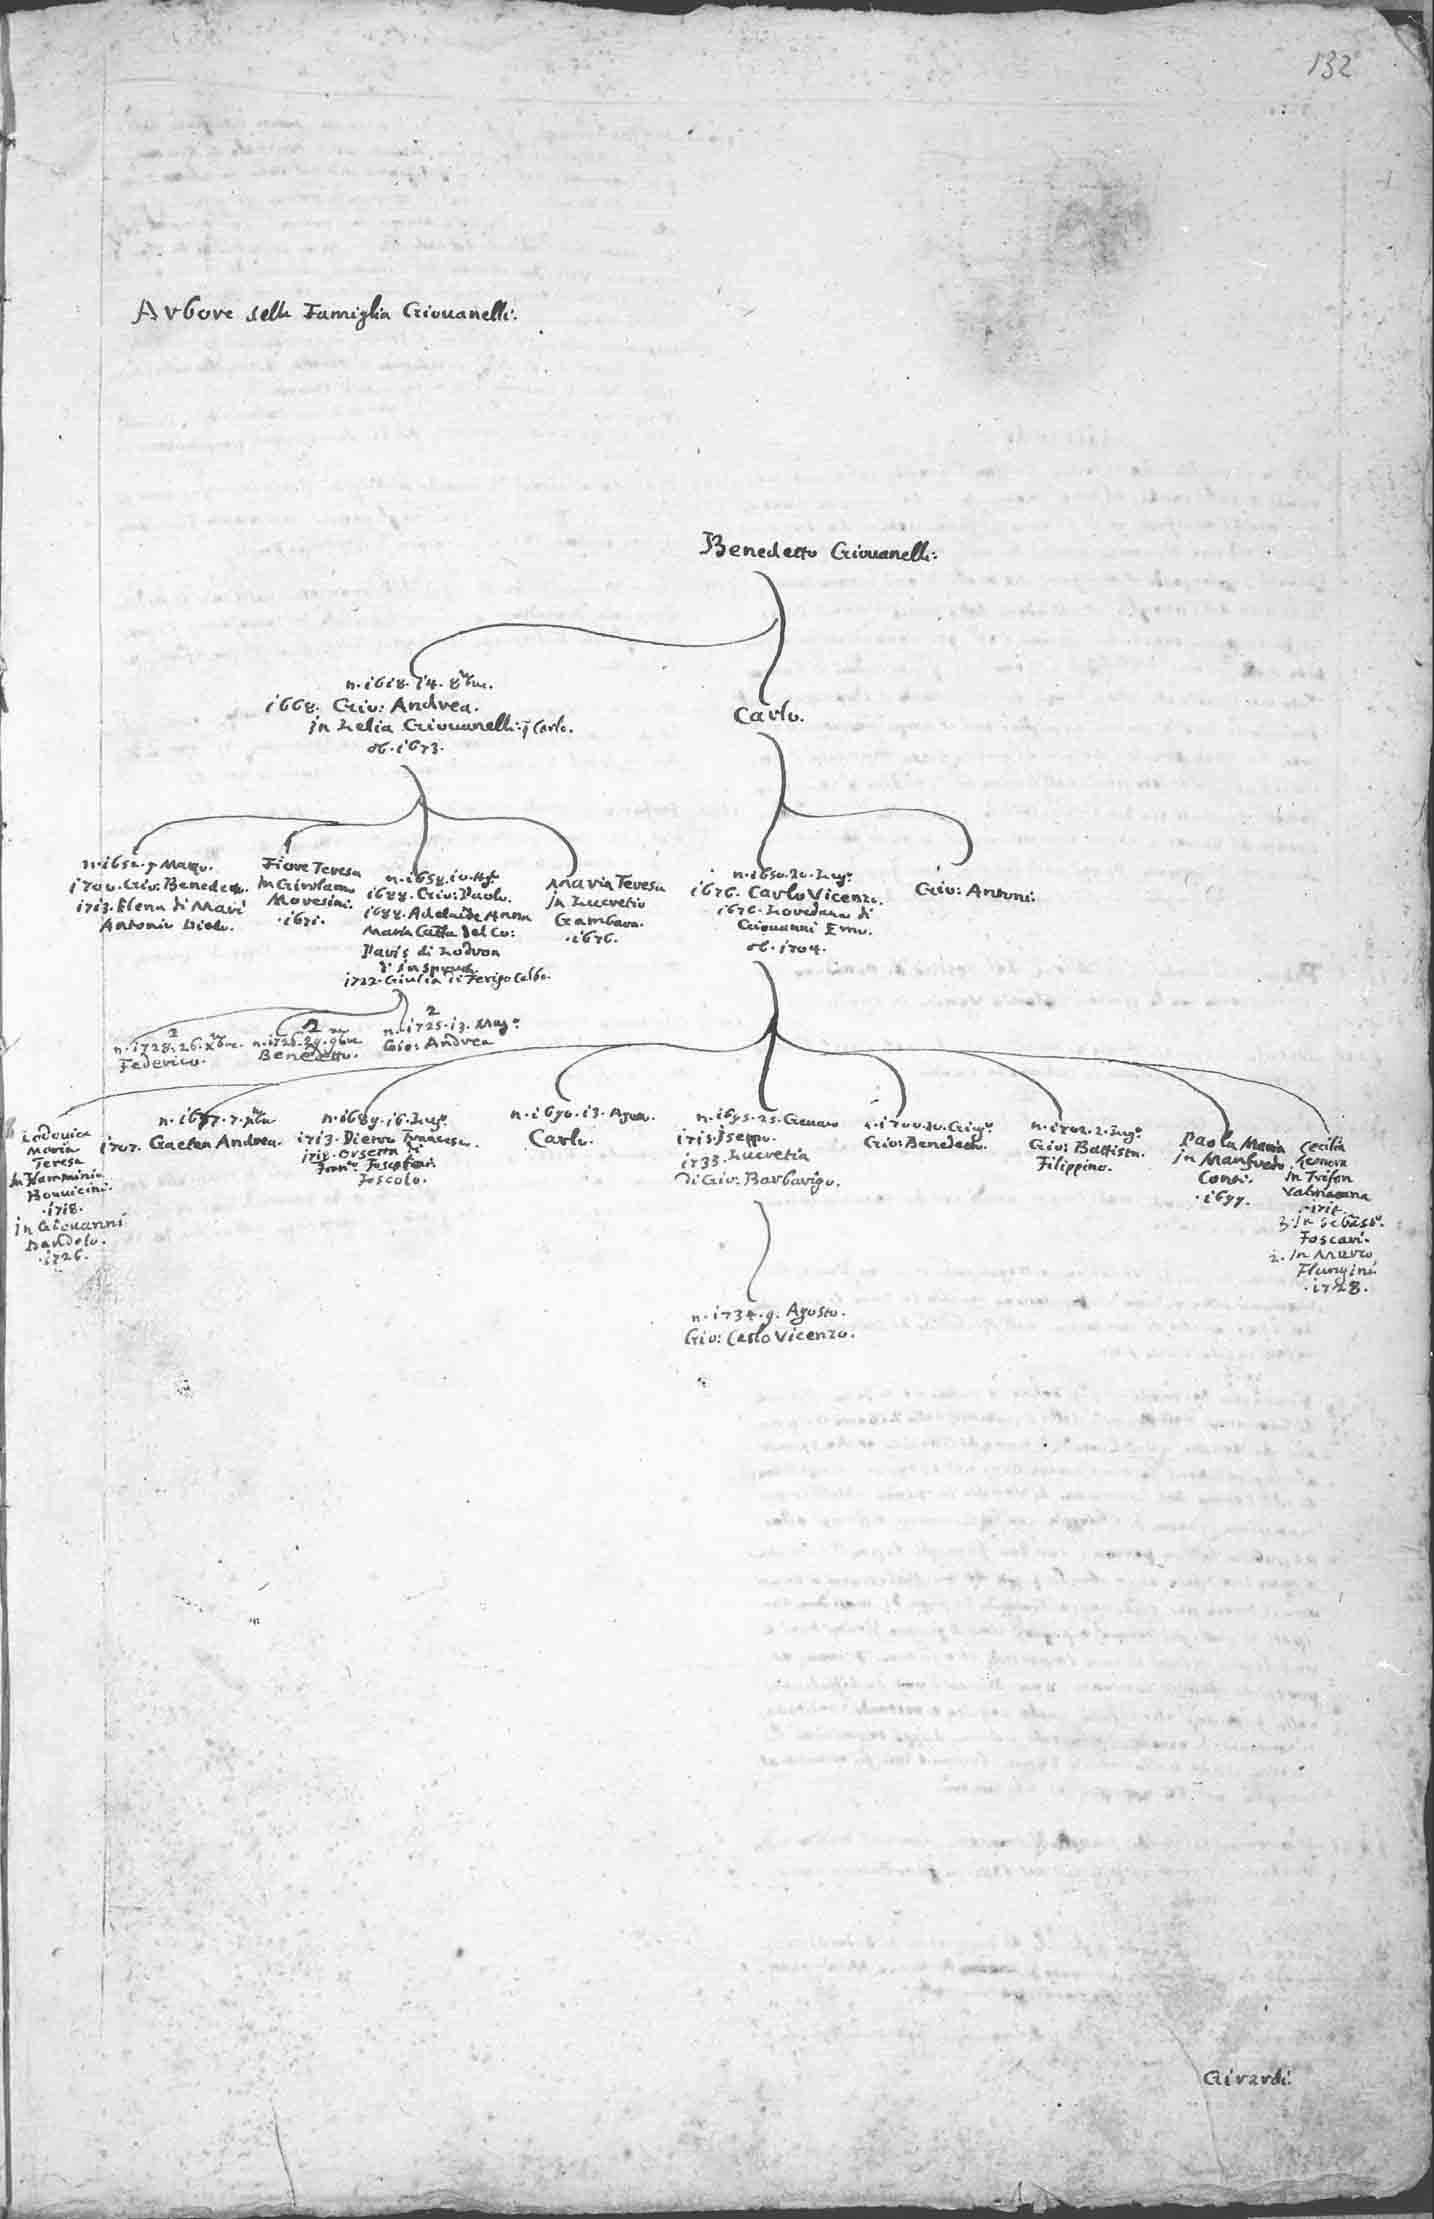 132
Arbore della Famiglia Giovanelli.
Benedetto Giovanelli.
n. 1618. 14. 8bre.
1668. Gio: Andrea.
in Lelia Giovanelli: q Carlo.
ob. 1673.
Carlo.
n. 1652. 7 Marzo.
1700. Gio: Benedetto.
1713. Elena di Marc'
Antonio Diedo.
Fiore Teresa
In Girolamo
Moresini.
.1671.
n. 1658. 10.
1688. Gio: Paolo.
1688. Adelaide Anna
Maria Catta del Co:
Paris di Lodron
d'Inspruch
1722. Giulia di Ferigo Calbo.
Maria Teresa
in Lucretio
Gambara.
.1676.
n. 1650. 20. Lugo.
1676. Carlo Vicenzo.
1676. Loredana di
Giovanni Emo.
ob. 1704.
Gio: Antoni:
2
n. 1728. 26. Xbre.
Federico.
2
n. 1726. 29. 9bre
Benedetto.
2
n. 1725. 13. Mago.
Gio: Andrea
Lodovica
Maria
Teresa
In Flamminio
Bonvicini.
.1718.
in Giovanni
Dandolo.
.1726.
n. 1687. 7. Xbre
1707. Gaetan Andrea.
n. 1689. 16. Lugo.
1713. Pietro Francesco.
1718. Orsetta di
Foscolo.
n. 1690. 13. Agto.
Carlo.
n. 1695. 25. Genaro
1715. Iseppo.
1733. Lucretia
di Gio: Barbarigo.
n. 1700. 20. Giugo.
Gio: Benedetto.
n. 1702. 2. Lugo.
Gio: Battista.
Filippino.
Paola Maria
in Manfredo
Conti.
.1697.
Cecilia
Leonora
In Trifon
Valmarana
In Sebasto.
Foscari.
2. In Marco
Flangini.
.1728.
n. 1734. 9. Agosto.
Gio: Carlo Vicenzo.
Girardi.